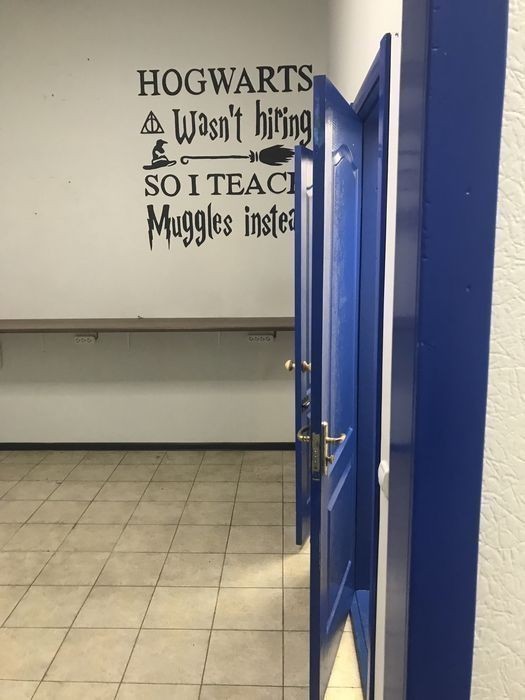 HOGWARTS
Wasn't hiring
SO I TEAC
Muggles inste